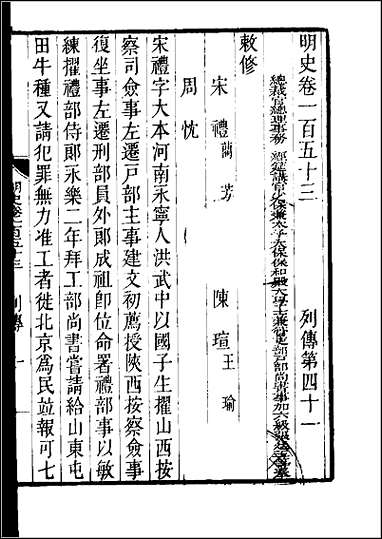 明史卷一百五十三　列傳第四十一
總裁官總理事務經筵講官少保兼太子太保保和殿大學士兼管吏部戶部尚書事加六級張廷玉等奉
敕修
宋禮藺芳　陳瑄王瑜
周忱
宋禮字大本河南永寧人洪武中以國子生擢山西按
察司僉事左遷戶部主事建文初薦授陝西按察僉事
復坐事左遷刑部員外郎成祖即位命署禮部事以敏
練擢禮部侍郎永樂二年拜工部尚書嘗請給山東屯
田牛種又請犯罪無力准工者徙北京為民並報可七
明史卷一百五十三　列傳　一